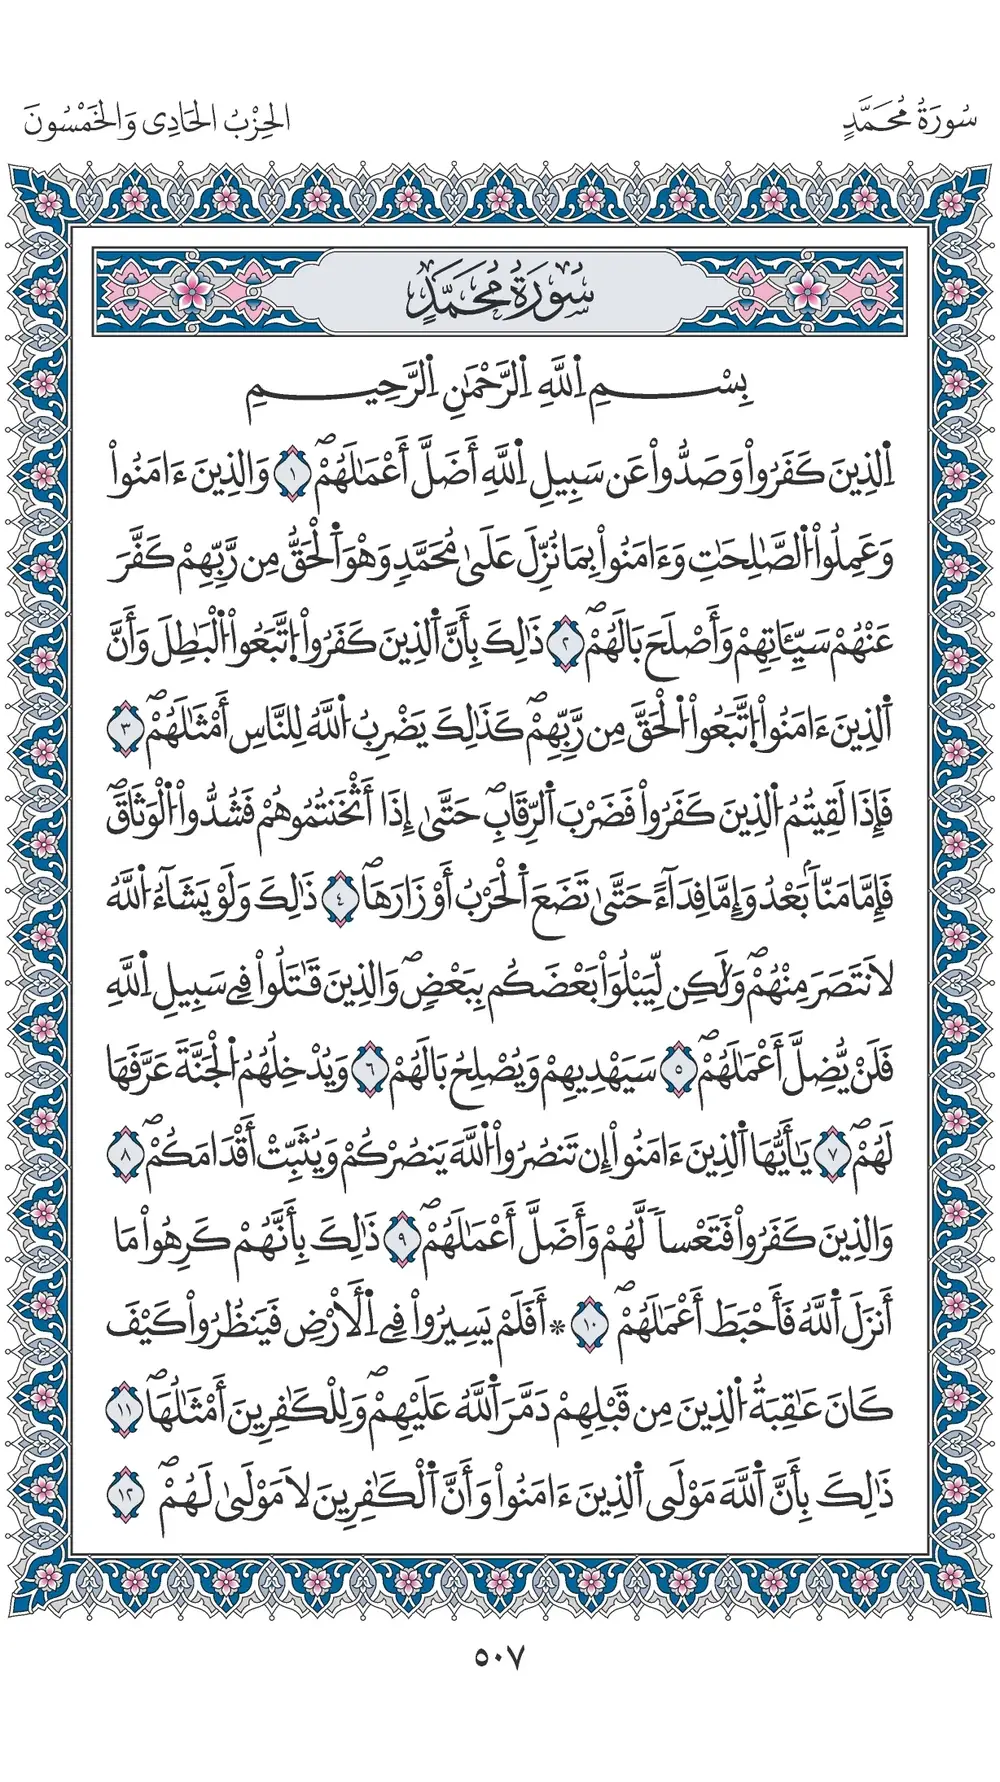 سُورَةُ مُحَمَّدٍ
الحِزْبُ الحَادِى وَالخَمْسُونَ
سُورَةُ مُحَمَّدٍ
بِسْمِ اِ۬للَّهِ اِ۬لرَّحْمَٰنِ اِ۬لرَّحِيمِ
اِ۬لذِينَ كَفَرُواْ وَصَدُّواْ عَن سَبِيلِ اِ۬للَّهِ أَضَلَّ أَعْمَٰلَهُمْۖ ١ وَالذِينَ ءَامَنُواْ
وَعَمِلُواْ اُ۬لصَّٰلِحَٰتِ وَءَامَنُواْ بِمَا نُزِّلَ عَلَىٰ مُحَمَّدٖ وَهْوَ اَ۬لْحَقُّ مِن رَّبِّهِمْ كَفَّرَ
عَنْهُمْ سَيِّـَٔاتِهِمْ وَأَصْلَحَ بَالَهُمْۖ ٢ ذَٰلِكَ بِأَنَّ اَ۬لذِينَ كَفَرُواْ اُ۪تَّبَعُواْ اُ۬لْبَٰطِلَ وَأَنَّ
اَ۬لذِينَ ءَامَنُواْ اُ۪تَّبَعُواْ اُ۬لْحَقَّ مِن رَّبِّهِمْۖ كَذَٰلِكَ يَضْرِبُ اُ۬للَّهُ لِلنَّاسِ أَمْثَٰلَهُمْۖ ٣
فَإِذَا لَقِيتُمُ اُ۬لذِينَ كَفَرُواْ فَضَرْبَ اَ۬لرِّقَابِۖ حَتَّىٰ إِذَا أَثْخَنتُمُوهُمْ فَشُدُّواْ اُ۬لْوَثَاقَۖ
فَإِمَّا مَنّاَۢ بَعْدُ وَإِمَّا فِدَآءً حَتَّىٰ تَضَعَ اَ۬لْحَرْبُ أَوْزَارَهَاۖ ٤ ذَٰلِكَ وَلَوْ يَشَآءُ اُ۬للَّهُ
لَانتَصَرَ مِنْهُمْۖ وَلَٰكِن لِّيَبْلُوَاْ بَعْضَكُم بِبَعْضٖۖ وَالذِينَ قَٰتَلُواْ فِے سَبِيلِ اِ۬للَّهِ
فَلَنْ يُّضِلَّ أَعْمَٰلَهُمْۖ ٥ سَيَهْدِيهِمْ وَيُصْلِحُ بَالَهُمْ ٦ وَيُدْخِلُهُمُ اُ۬لْجَنَّةَ عَرَّفَهَا
لَهُمْۖ ٧ يَٰأَيُّهَا اَ۬لذِينَ ءَامَنُواْ إِن تَنصُرُواْ اُ۬للَّهَ يَنصُرْكُمْ وَيُثَبِّتْ أَقْدَامَكُمْۖ ٨
وَالذِينَ كَفَرُواْ فَتَعْساٗ لَّهُمْ وَأَضَلَّ أَعْمَٰلَهُمْۖ ٩ ذَٰلِكَ بِأَنَّهُمْ كَرِهُواْ مَا
أَنزَلَ اَ۬للَّهُ فَأَحْبَطَ أَعْمَٰلَهُمْۖ ١٠ * أَفَلَمْ يَسِيرُواْ فِے اِ۬لْأَرْضِ فَيَنظُرُواْ كَيْفَ
كَانَ عَٰقِبَةُ اُ۬لذِينَ مِن قَبْلِهِمْ دَمَّرَ اَ۬للَّهُ عَلَيْهِمْۖ وَلِلْكَٰفِرِينَ أَمْثَٰلُهَاۖ ١١
ذَٰلِكَ بِأَنَّ اَ۬للَّهَ مَوْلَى اَ۬لذِينَ ءَامَنُواْ وَأَنَّ اَ۬لْكَٰفِرِينَ لَا مَوْلَىٰ لَهُمْۖ ١٢
٥٠٧